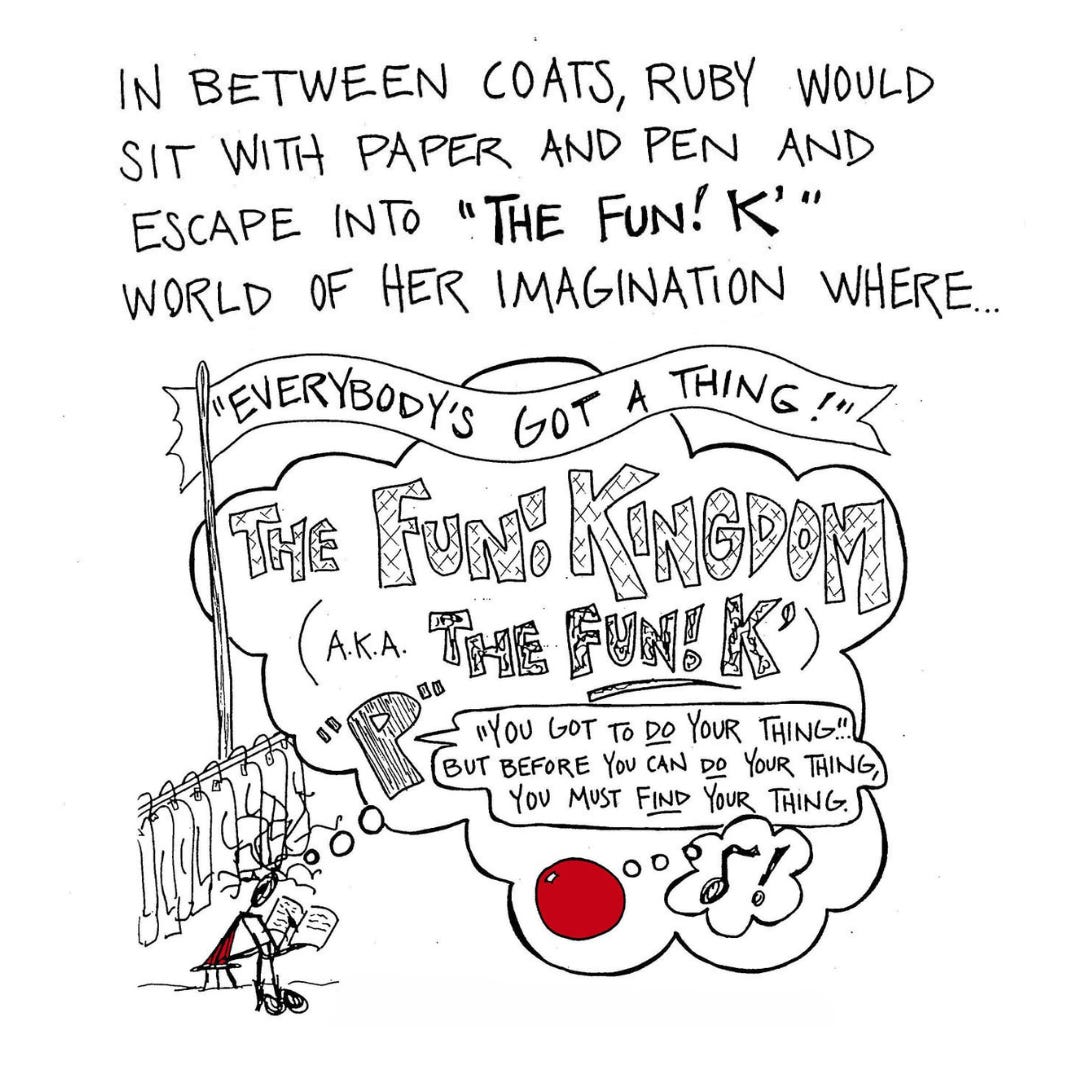 IN BETWEEN COATS, RUBY WOULD
SIT WITH PAPER AND PEN AND
ESCAPE INTO "THE FUN! K'"
WORLD OF HER IMAGINATION WHERE...
"EVERYBODY'S GOT A THING!"
THE FUN! KINGDOM
(A.K.A. THE FUN! K')
"P"
"YOU GOT TO DO YOUR THING"..
BUT BEFORE YOU CAN DO YOUR THING,
YOU MUST FIND YOUR THING.